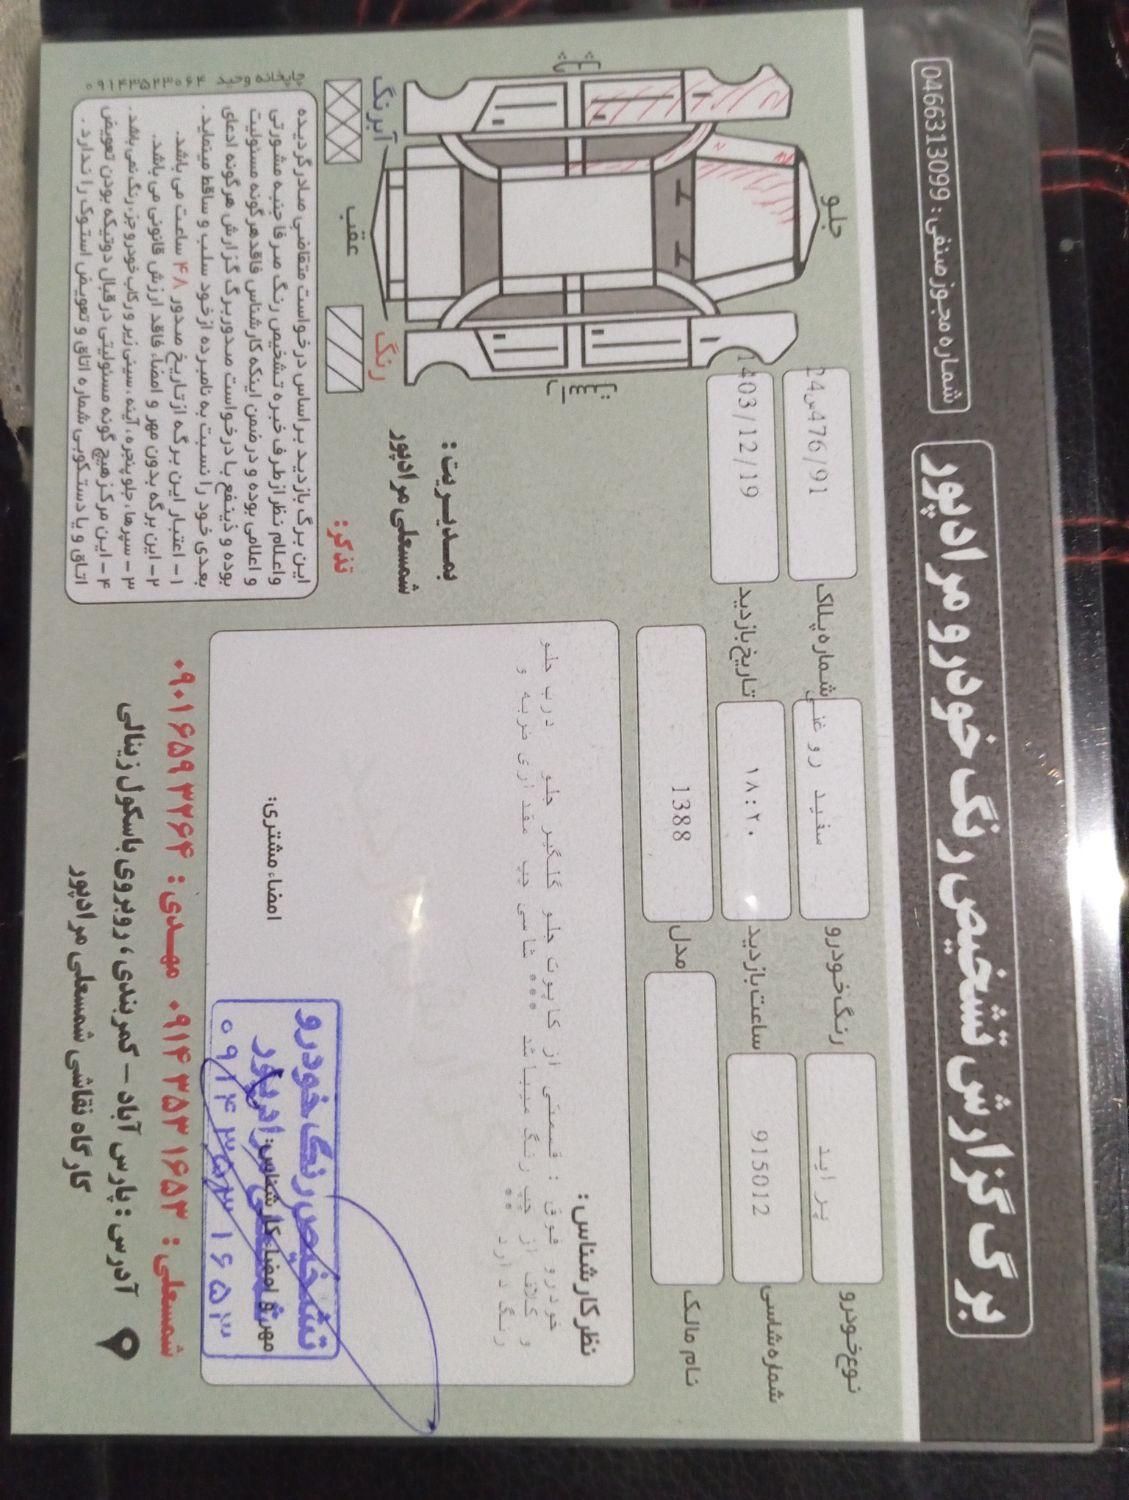 برگ گزارش تشخیص رنگ خودرو مرادپور
شماره مجوز صنفی: 0466313099
نوع خودرو
پراید
رنگ خودرو
سفید روغنی
شماره پلاک
24س476/91
شماره شاسی
915012
ساعت بازدید
۱۸:۲۰
تاریخ بازدید
1403/12/19
نام مالک
مدل
1388
جلو
عقب
رنگ
آبرنگ
نظر کارشناس:
خودرو فوق : قسمتی از کاپوت جلو گلگیر جلو درب جلو
و کلاف از چپ رنگ میباشد *** شاسی چپ مقداری ضربه و
رنگ دارد **
مهر و امضاء کارشناس:
امضاء مشتری:
تشخیص رنگ خودرو
شمسعلی مرادپور
۰۹۱۴۳۵۳۱۶۵۳
بمدیریت:
شمسعلی مرادپور
تذکر:
این برگ بازدید بر اساس درخواست متقاضی صادر گردیده
و اعلام نظر از طرف خبره تشخیص رنگ صرفا جنبه مشورتی
و اعلامی بوده و در ضمن اینکه کارشناس فاقد هرگونه مسئولیت
بوده و ذینفع با درخواست صدور برگ گزارش هرگونه ادعای
بعدی خود را نسبت به نامبرده از خود سلب و ساقط مینماید.
۱- اعتبار این برگه از تاریخ صدور ۴۸ ساعت می باشد.
۲- این برگه بدون مهر و امضاء فاقد ارزش قانونی می باشد.
۳- سپرها، جلو پنجره، آینه، سینی زیر و رکاب خودرو جزء رنگ نمی باشد.
۴- این مرکز هیچ گونه مسئولیتی در قبال دوتیکه بودن تعویض
اتاق و یا دستکوبی شماره اتاق و تعویض استوک را ندارد.
چاپخانه وحید ۰۹۱۴۳۵۲۳۰۶۴
شمسعلی: ۰۹۱۴۳۵۳۱۶۵۳ مهدی: ۰۹۰۱۶۵۹۳۲۶۴
آدرس: پارس آباد - کمربندی، روبروی باسکول زینالی
کارگاه نقاشی شمسعلی مرادپور